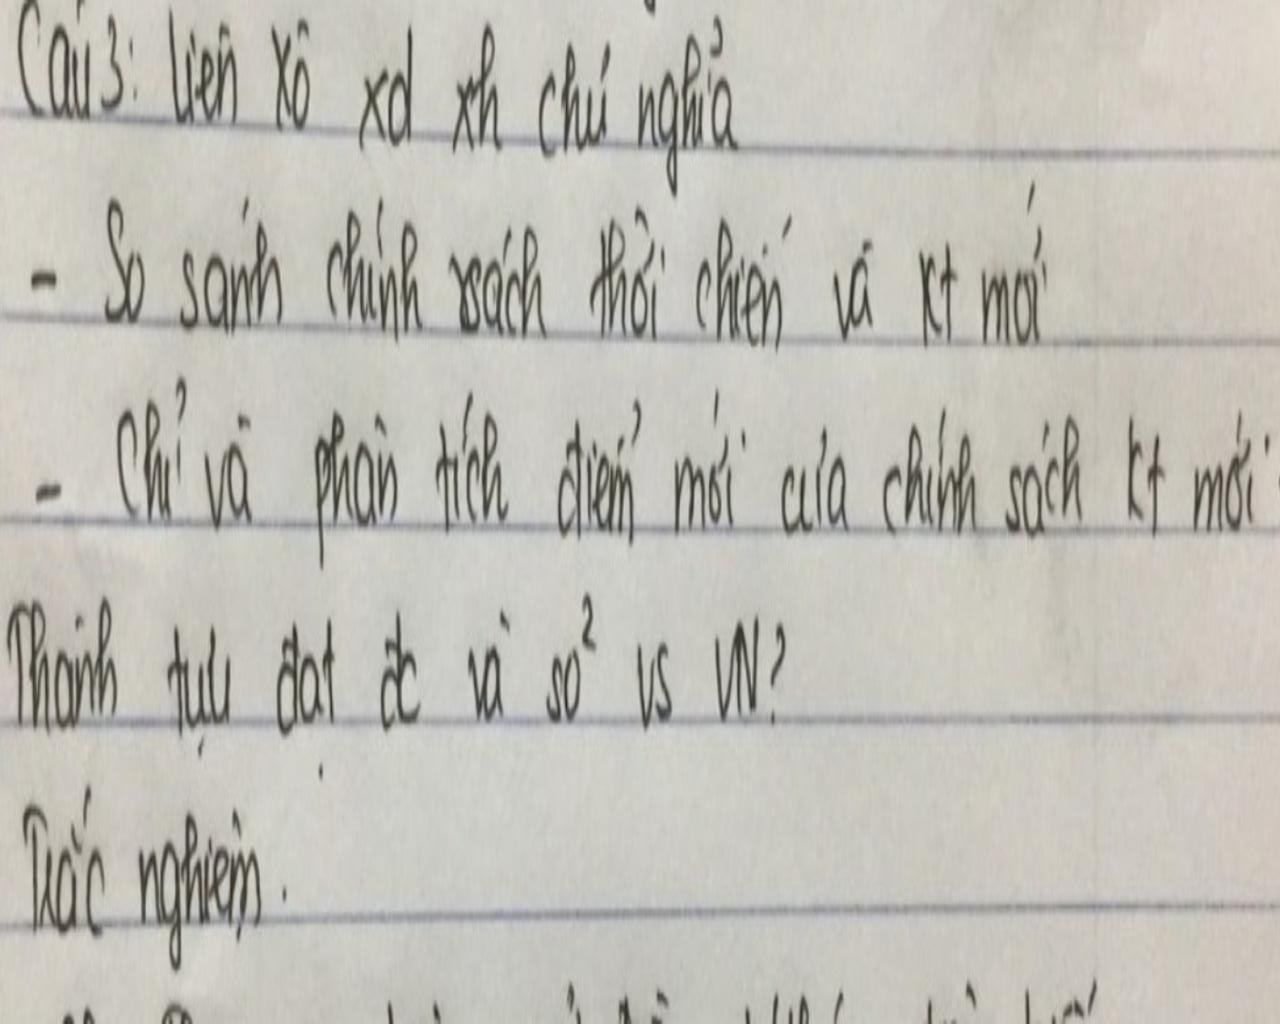 Câu 3: Liên Xô xd xh chủ nghĩa
- So sánh chính sách thời chiến và kt mới
- Chỉ và phân tích điểm mới của chính sách kt mới.
Thành tựu đạt đc và so² vs VN?
Trắc nghiệm.